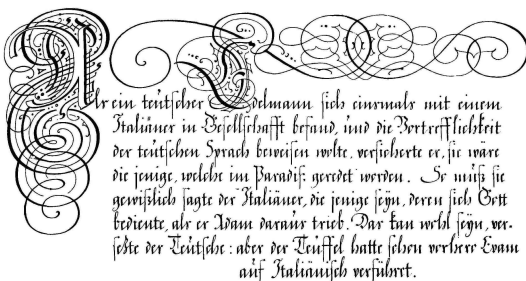 Als ein teütscher Edelmann sich einsmals mit einem
Italiäner in Gesellschafft befand, und die Vortrefflichkeit
der teütschen Sprach beweisen wolte, versicherte er, sie wäre
die jenige, welche im Paradiß geredet worden. So müß sie
gewißlich sagte der Italiäner, die jenige seÿn, deren sich Gott
bediente, als er Adam daraus trieb. Das kan wohl seÿn, ver-
setzte der Teütsche: aber der Teüffel hatte schon vorhero Evam
auf Italiänisch verführet.